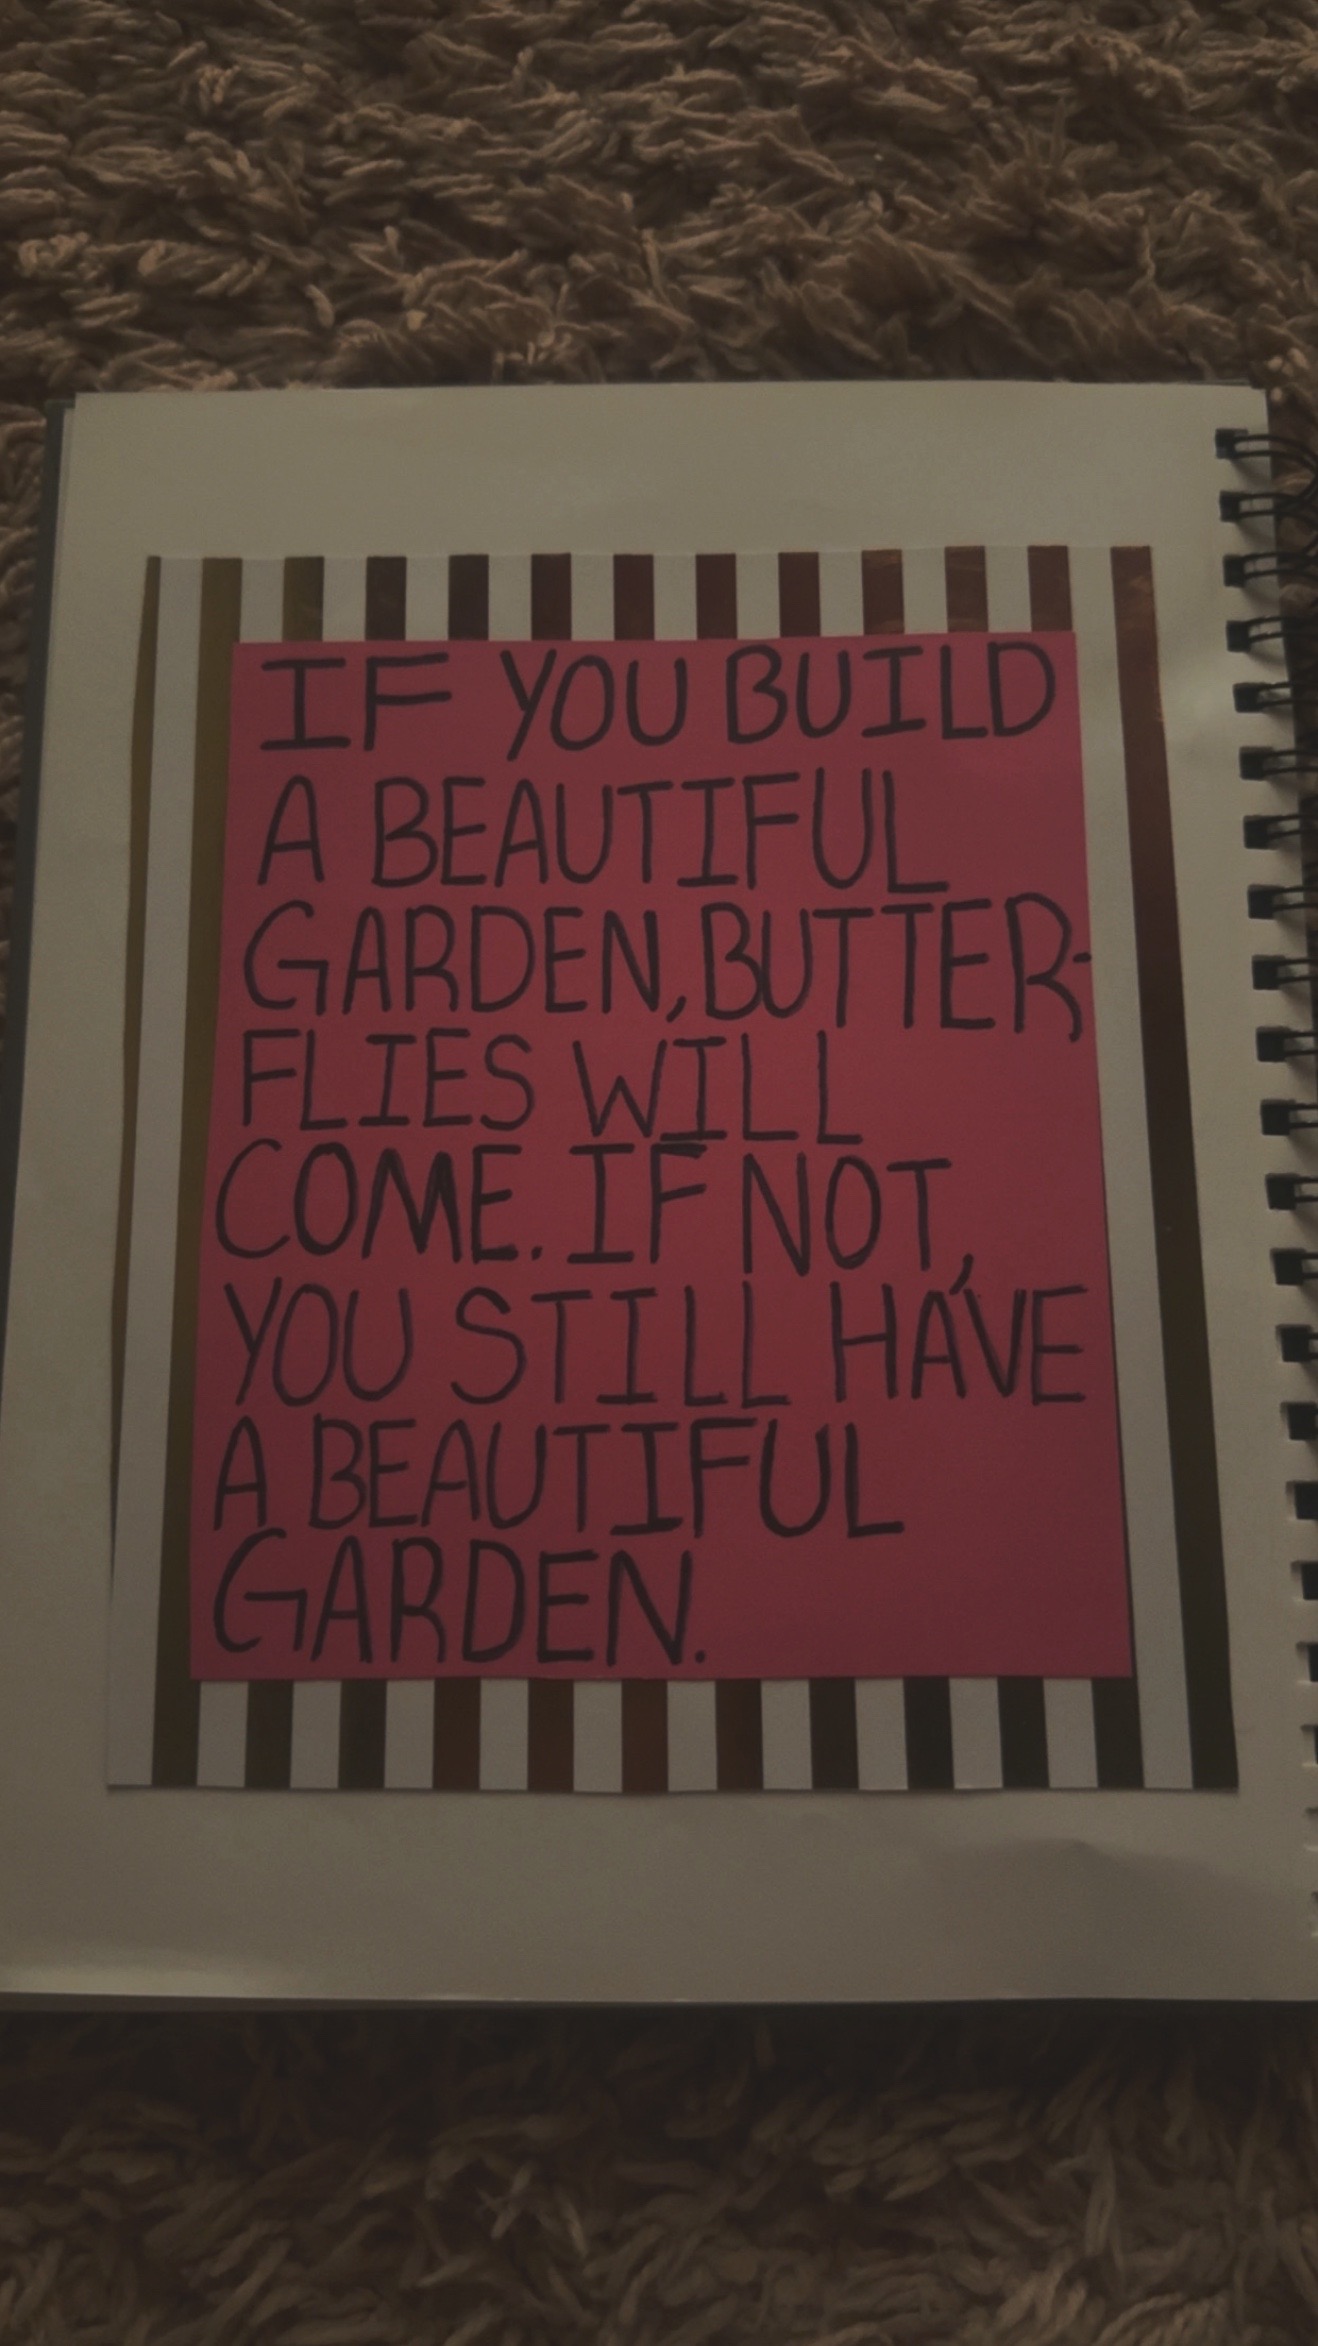 IF YOU BUILD
A BEAUTIFUL
GARDEN, BUTTER-
FLIES WILL
COME. IF NOT,
YOU STILL HAVE
A BEAUTIFUL
GARDEN.